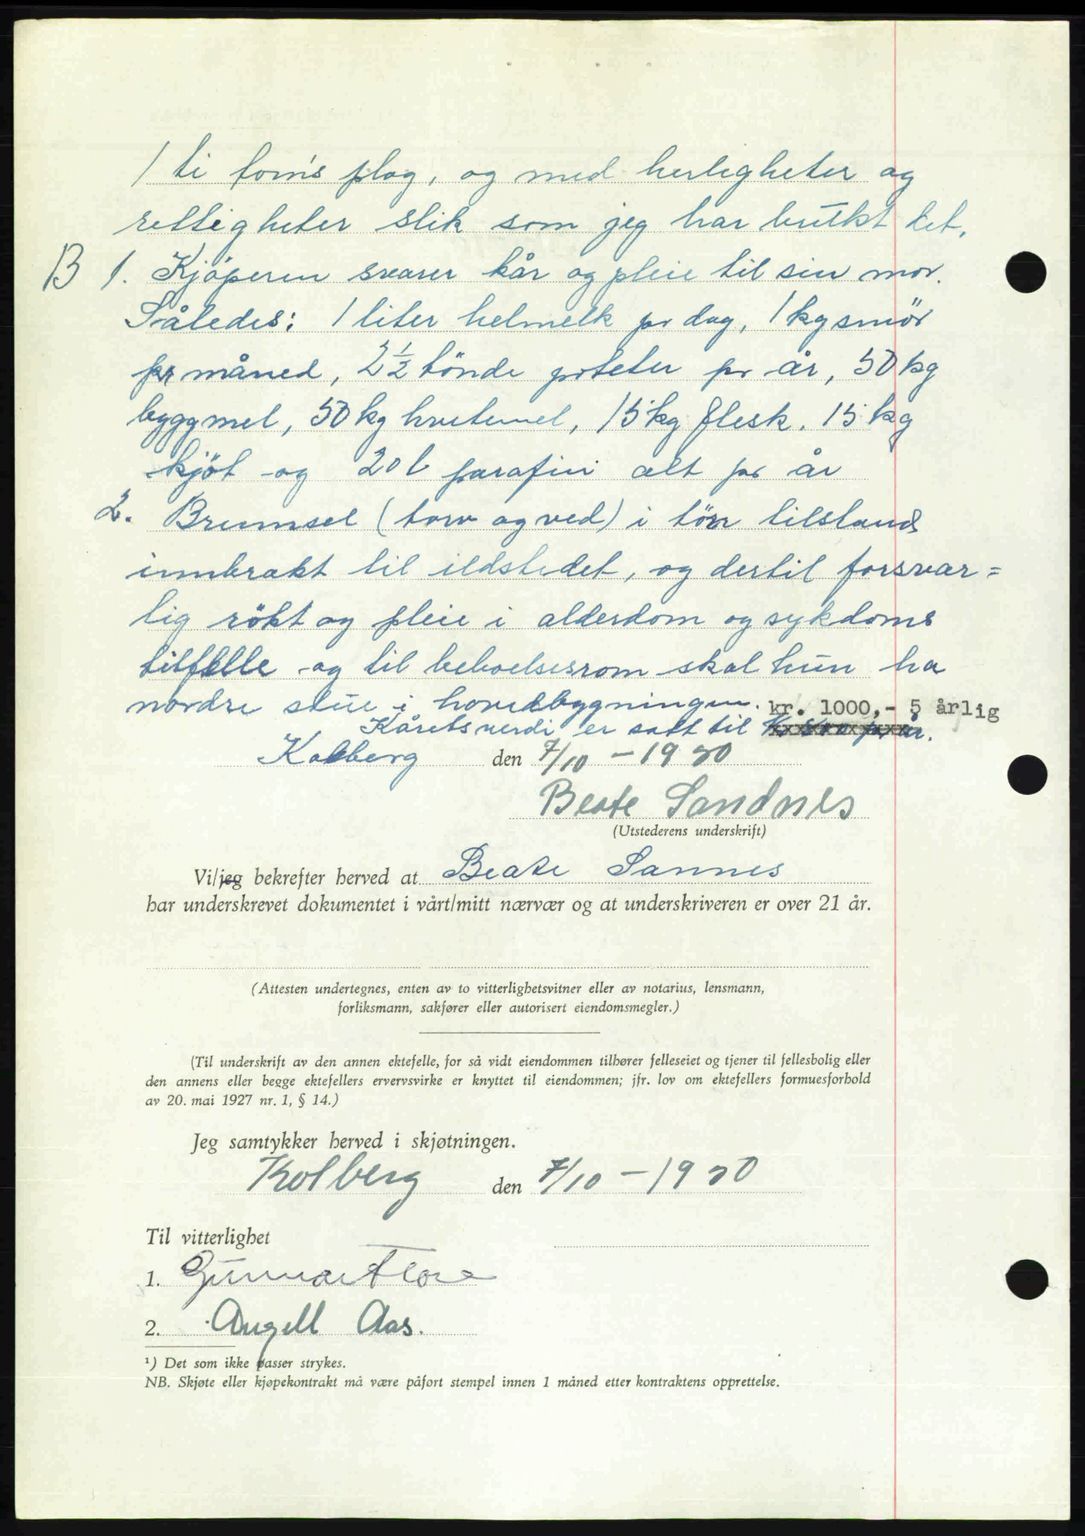 1 ti tom's plog, og med herligheter og
rettigheter slik som jeg har brukt det.
B 1. Kjöperen svarer kår og pleie til sin mor.
Således: 1 liter helmelk pr dag, 1 kg smör
pr måned, 2 1/2 tönde poteter pr år, 50 kg
byggmel, 50 kg hvetemel, 15 kg flesk. 15 kg
kjöt og 20 l parafin alt pr år
2. Brennsel (torv og ved) i törr tilstand
innbrakt til ildstedet, og dertil forsvar=
lig rökt og pleie i alderdom og sykdoms
tilfelle og til beboelsesrom skal hun ha
nordre stue i hovedbygningen. kr. 1000,- 5 årlig
Kårets verdi er satt til pr år.
Kolberg den 7/10 - 1950
Beate Sandnes
(Utstederens underskrift)
Vi/jeg bekrefter herved at Beate Sannes
har underskrevet dokumentet i vårt/mitt nærvær og at underskriveren er over 21 år.
(Attesten undertegnes, enten av to vitterlighetsvitner eller av notarius, lensmann,
forliksmann, sakfører eller autorisert eiendomsmegler.)
(Til underskrift av den annen ektefelle, for så vidt eiendommen tilhører felleseiet og tjener til fellesbolig eller
den annens eller begge ektefellers ervervsvirke er knyttet til eiendommen; jfr. lov om ektefellers formuesforhold
av 20. mai 1927 nr. 1, § 14.)
Jeg samtykker herved i skjøtningen.
Kolberg den 7/10 - 1950
Til vitterlighet
1. Gunnar Flore
2. Angell Aas.
¹) Det som ikke passer strykes.
NB. Skjøte eller kjøpekontrakt må være påført stempel innen 1 måned etter kontraktens opprettelse.